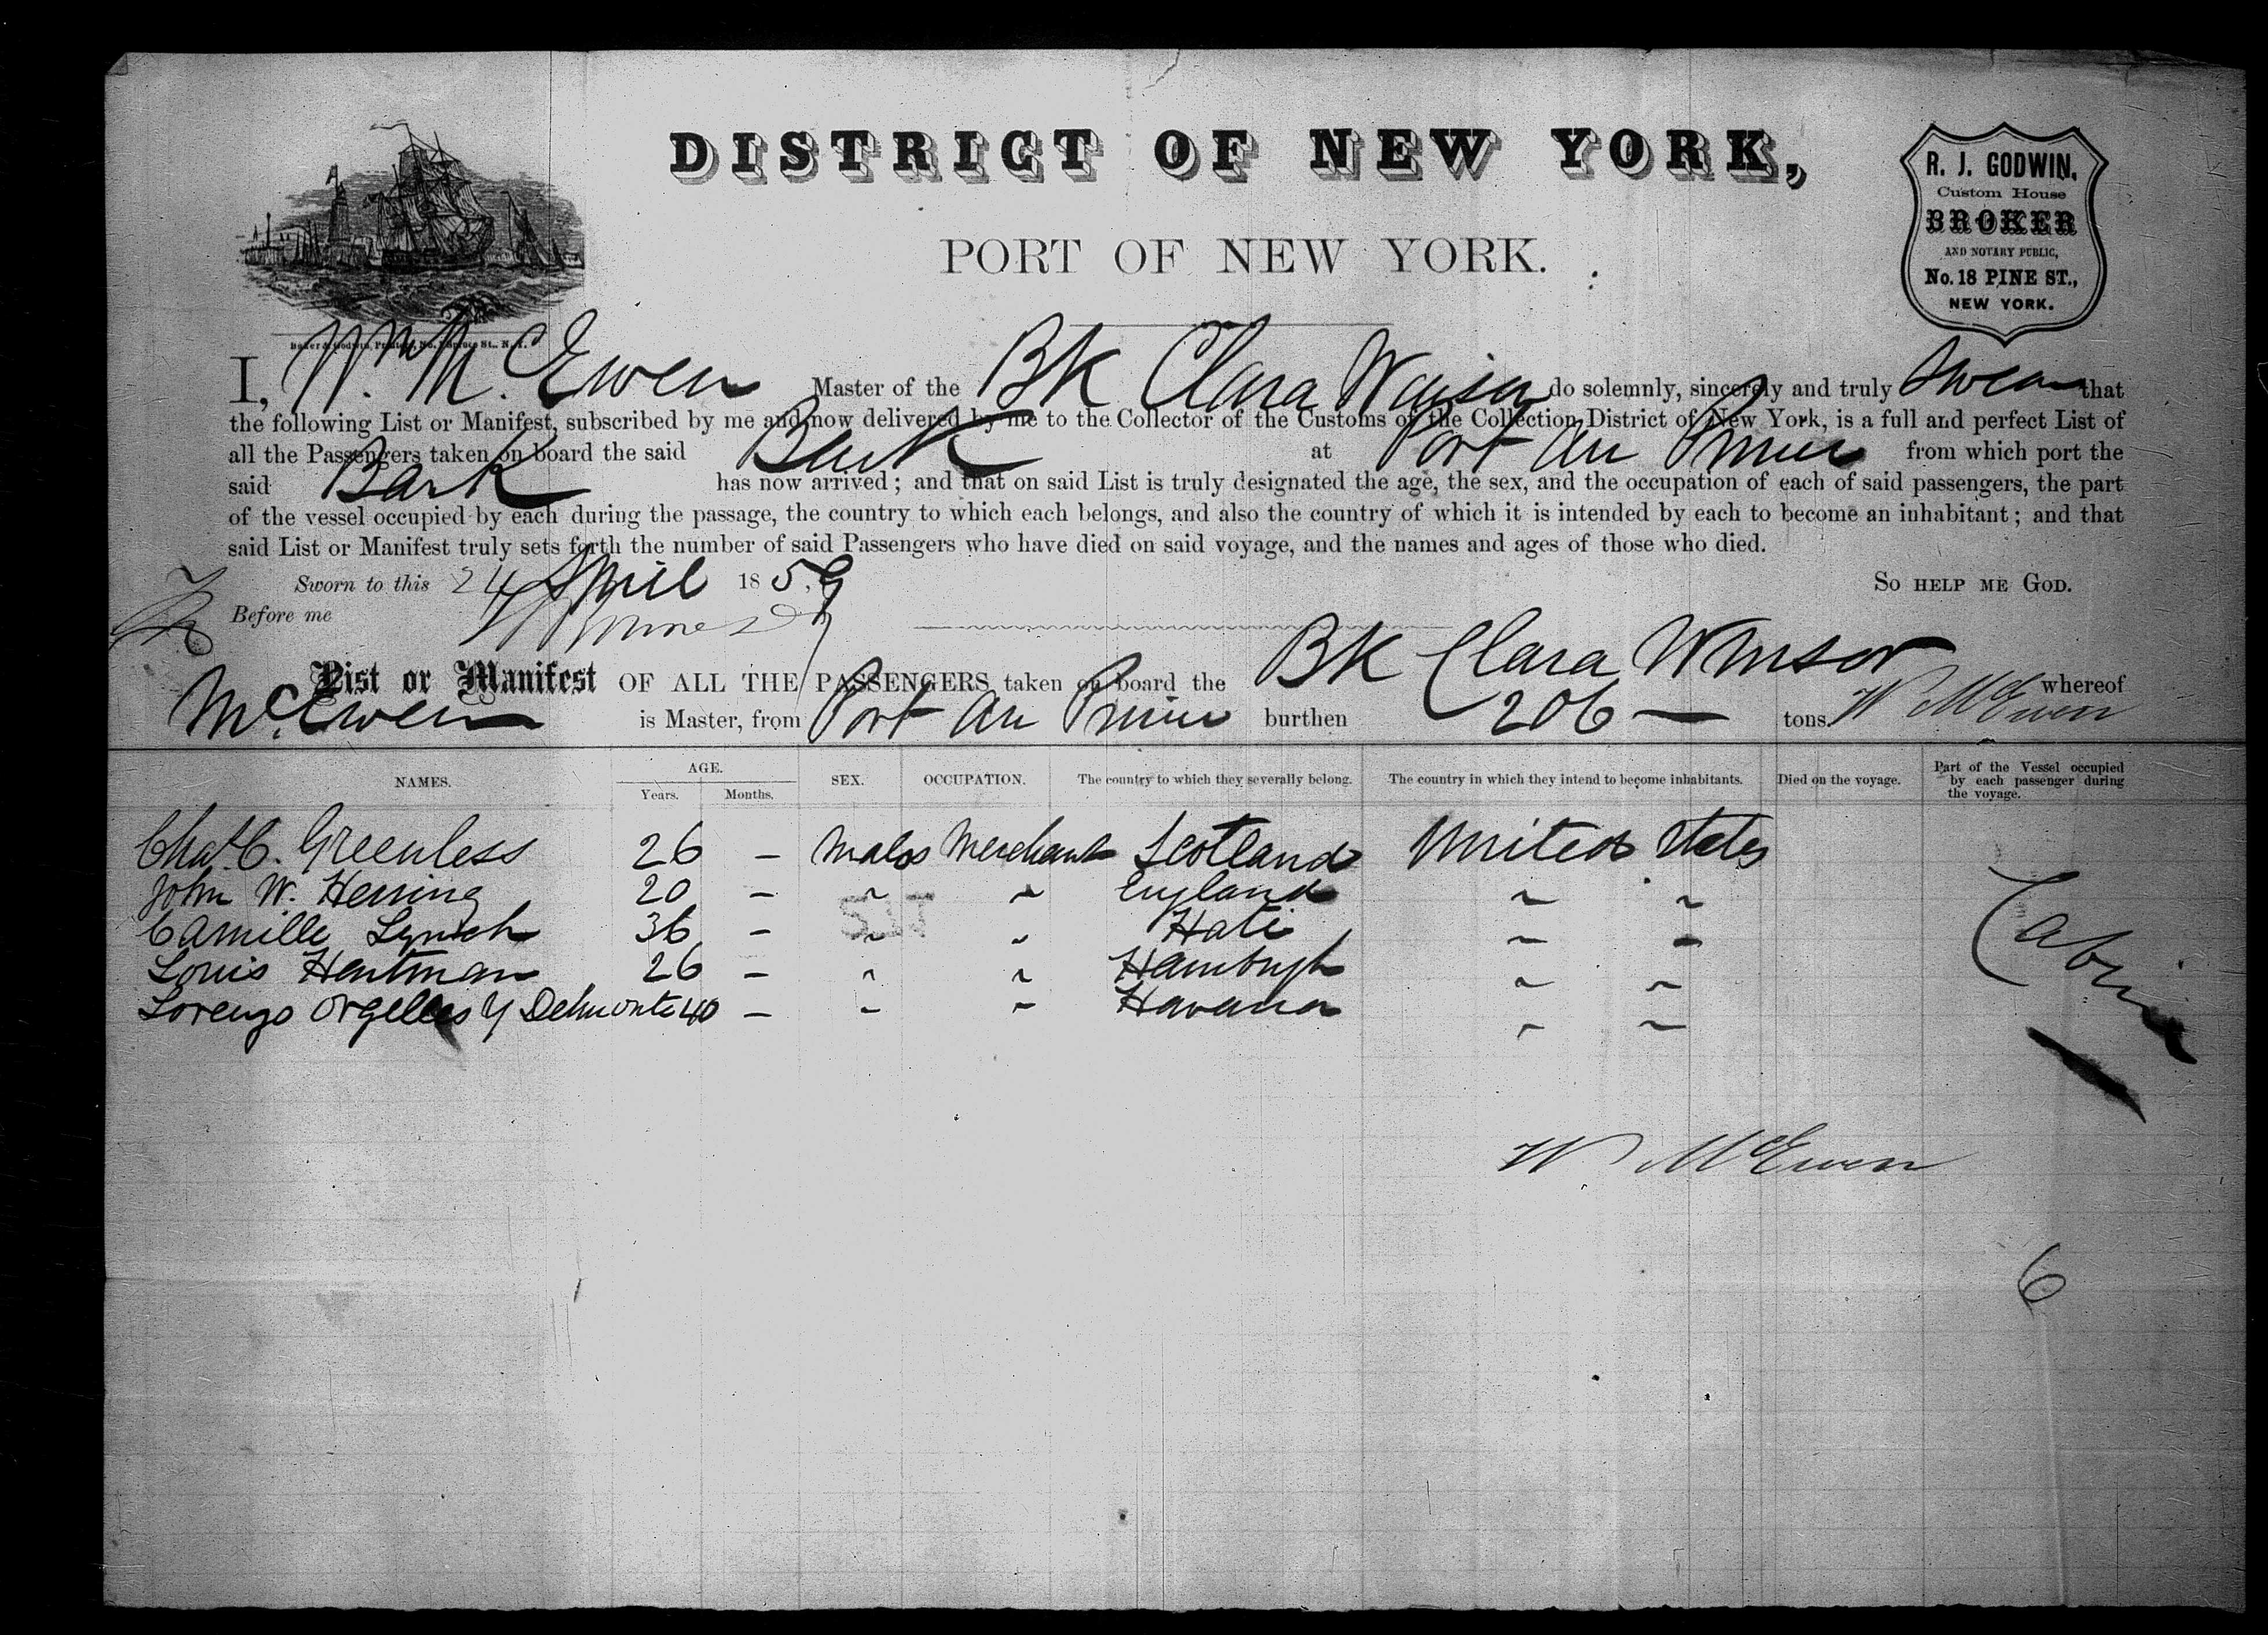 DISTRICT OF NEW YORK,
PORT OF NEW YORK.
R. J. GODWIN,
Custom House
BROKER
AND NOTARY PUBLIC,
No. 18 PINE ST.,
NEW YORK.
Baker & Godwin, Printers, No. 1 Spruce St., N. Y.
I, Wm McEwen Master of the Bk Clara Winsor do solemnly, sincerely and truly Swear that
the following List or Manifest, subscribed by me and now delivered by me to the Collector of the Customs of the Collection District of New York, is a full and perfect List of
all the Passengers taken on board the said Bark at Port Au Prince from which port the
said Bark has now arrived; and that on said List is truly designated the age, the sex, and the occupation of each of said passengers, the part
of the vessel occupied by each during the passage, the country to which each belongs, and also the country of which it is intended by each to become an inhabitant; and that
said List or Manifest truly sets forth the number of said Passengers who have died on said voyage, and the names and ages of those who died.
Sworn to this 24 April 1859 So help me God.
Before me
List or Manifest OF ALL THE PASSENGERS taken on board the Bk Clara Winsor whereof
McEwen is Master, from Port Au Prince burthen 206 — tons. W McEwen
NAMES. AGE. Years. Months. SEX. OCCUPATION. The country to which they severally belong. The country in which they intend to become inhabitants. Died on the voyage. Part of the Vessel occupied by each passenger during the voyage.
Chas C. Greenless 26 — Males Merchants Scotland United States
John W. Herring 20 — " " England " "
Camille Lynch 36 — " " Hati " "
Louis Hartman 26 — " " Hamburgh " "
Lorenzo Orgelles y Delmonte 40 — " " Havana " "
Cabin
W McEwen
6